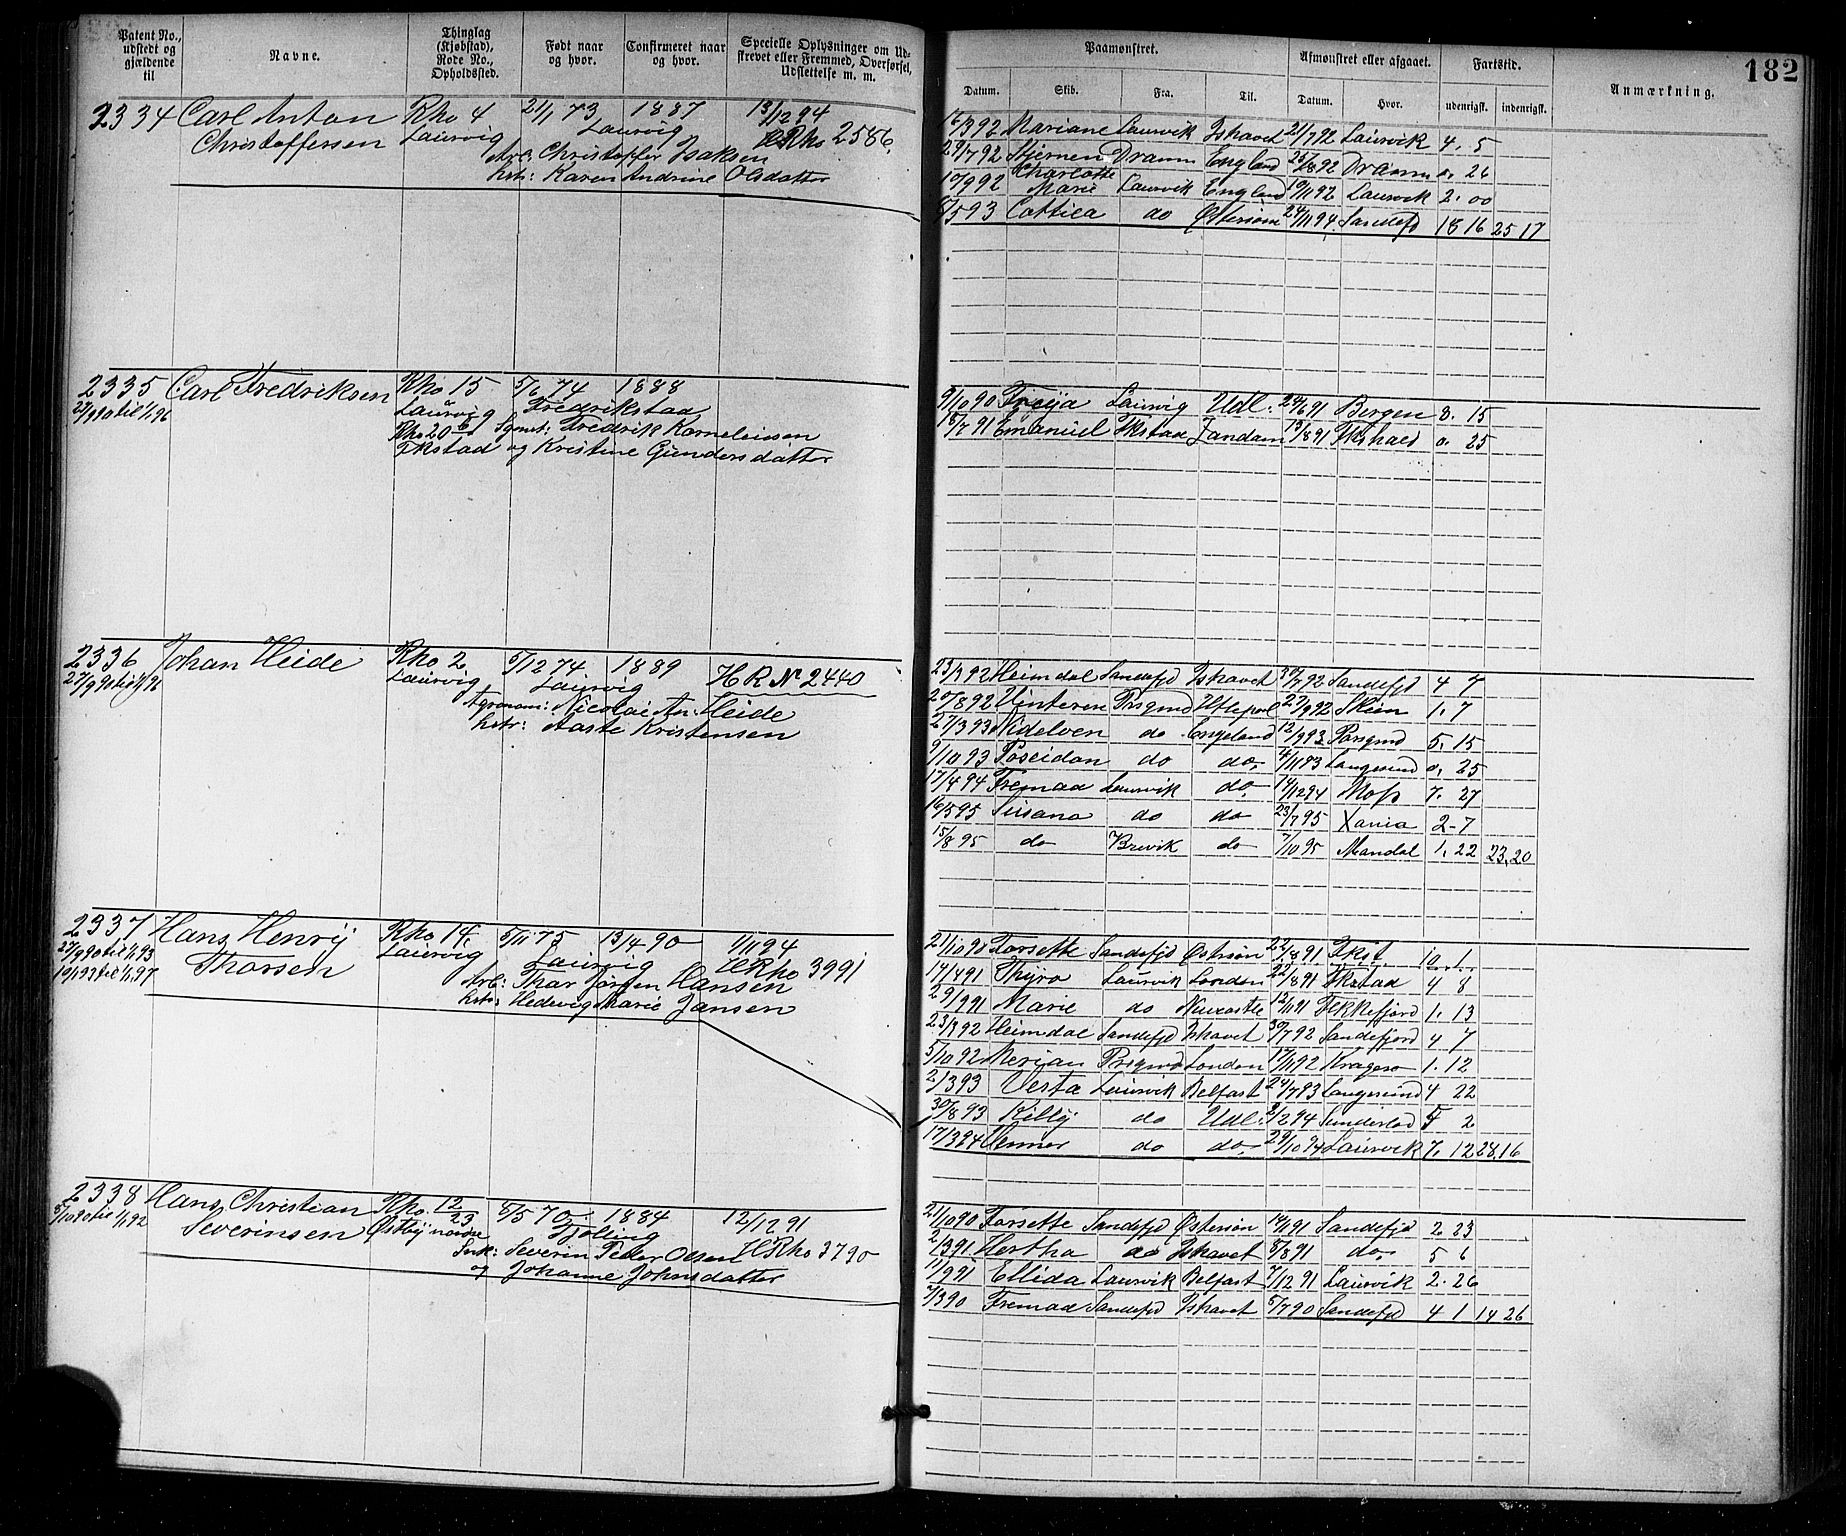 Patent No., udstedt og gjældende til
Navne.
Thinglag (Kjøbstad), Rode No., Opholdssted.
Født naar og hvor.
Confirmeret naar og hvor.
Specielle Oplysninger om Udskrevet eller Fremmed, Overførsel, Udslettelse m. m.
Paamønstret.
Afmønstret eller afgaaet.
Fartstid.
Anmærkning.
182
Datum. Skib. Fra. Til. Datum. Hvor. udenrigsk. indenrigsk.
2334 Carl Anton Rho 4 21/1 73 1887 13/12 94
Christoffersen Laurvig Laurvig HRho 2586.
Arb: Christoffer Isaksen
hstr: Karen Andrine Olsdatter
16/3 92 Mariane Laurvik Ishavet 21/7 92 Laurvik 4. 5
29/7 92 Stjernen Dramn England 25/8 92 Dramn 0. 26
10/9 92 Charlotte Marie Laurvik England 10/11 92 Laurvik 2. 00
8/5 93 Cattica do Østersøen 24/11 94 Sandefjd 18 16 25 17
2335 Carl Fredriksen Rho 15 5/6 74 1888
27/9 90 til 1/1 96 Laurvig Fredrikstad
Rho 20 Sømd: Fredrik Korneliussen
Fkstad og Kristine Gundersdatter
9/10 90 Freija Laurvig Udl. 24/6 91 Bergen 8. 15
18/7 91 Emanuel Fkstad Zandam 13/8 91 Fkshald 0. 25
2336 Johan Heide Rho 2 5/12 74 1889 HR No 2440
27/9 90 til 1/1 96 Laurvig Laurvig
Agronom: Nicolai An. Heide
hstr: Aaste Kristensen
23/3 92 Heimdal Sandefjd Ishavet 30/7 92 Sandefjd 4 7
20/8 92 Vinteren Prsgrnd Htlepol 27/9 92 Skien 1. 7
27/3 93 Nidelven do Engeland 12/9 93 Porsgrnd 5. 15
9/10 93 Poseidon do do. 4/11 93 Langesund 0. 25
17/4 94 Fremad Laurvik do. 14/12 94 Moss 7. 27
16/5 95 Susana do do 23/7 95 Xania 2 - 7
15/8 95 do Brevik do 7/10 95 Mandal 1. 22 23, 20
2337 Hans Henrij Rho 14. 5/11 75 13/4 90 1/11 94
27/9 90 til 1/1 93 Thorsen Laurvig Laurvig HRho 3991
10/1 93 til 1/1 97 Arb: Thor Jørgen Hansen
hstr: Hedevig Marie Jansen
21/10 90 Forsette Sandefjd Østersøn 22/8 91. Fkst. 10. 1.
14/4 91 Thyra Laurvik London 22/8 91 Fkstad 4 8
29/9 91 Marie do Newcastle 12/11 91 Flekkefjord 1. 13
23/3 92 Heimdal Sandefjd Ishavet 30/7 92 Sandefjord 4 7
5/10 92 Merian Prsgrnd London 17/11 92 Kragerø 1. 12
2/3 93 Vesta Laurvik Belfast 24/7 93 Langesund 4 22
30/8 93 Killy do Udl. 2/2 94 Sunderlad 5 2
17/3 94 Venner do do. 29/10 94 Laurvik 7. 12 28. 16
2338 Hans Christian Rho. 12/23 5/5 70. 1884 12/12 91
8/10 90 til 1/1 92 Severinsen Østby nordre Tjøling HRho 3790
Smk: Severin Peder Olsen
og Johanne Johnsdatter
21/10 90 Forsette Sandefjd Østersøn 14/1 91 Sandefjd 2. 23
2/3 91. Hertha do Ishavet 8/8 91 do. 5 6
11/9 91 Ellida Laurvik Belfast 7/12 91 Laurvik 2. 26
7/3 90 Fremad Sandefjd Ishavet 8/7 90 Sandefjd 4 1 14 26